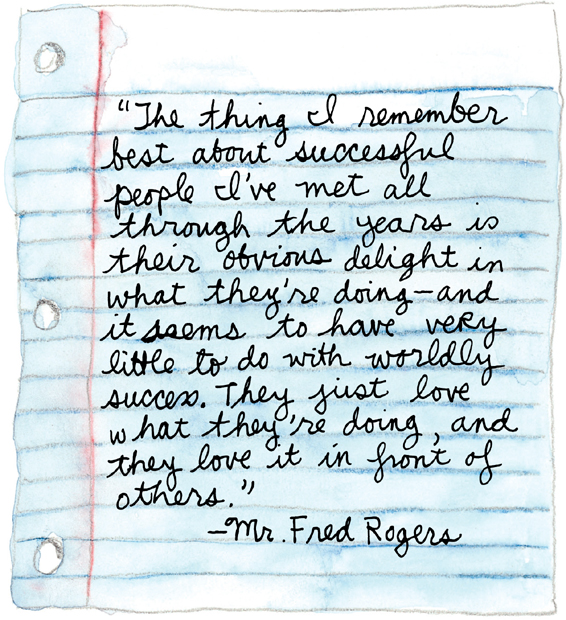 "The thing I remember
best about successful
people I've met all
through the years is
their obvious delight in
what they're doing—and
it seems to have very
little to do with worldly
success. They just love
what they're doing, and
they love it in front of
others."
—Mr. Fred Rogers